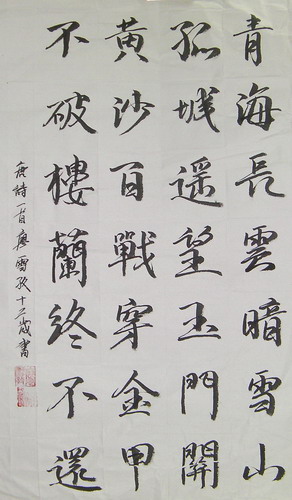 青海長雲暗雪山
孤城遥望玉門關
黄沙百戰穿金甲
不破樓蘭終不還
唐詩一首廖雪 十 歲書